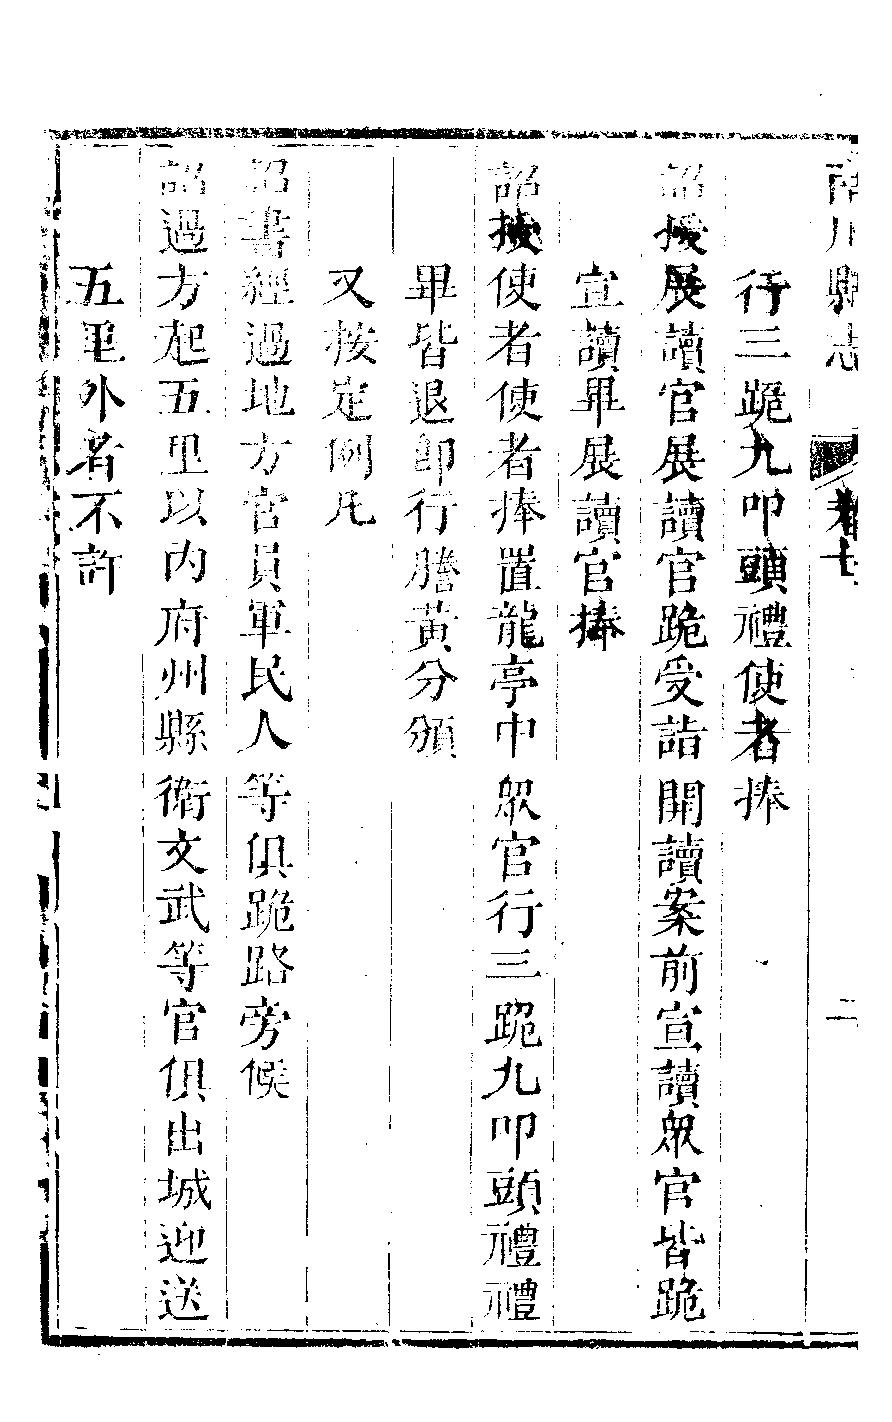 南川縣志 卷七 二
行三跪九叩頭禮使者捧
詔授展讀官展讀官跪受詣開讀案前宣讀眾官皆跪
宣讀畢展讀官捧
詔授使者使者捧置龍亭中眾官行三跪九叩頭禮禮
畢皆退卽行謄黃分頒
又按定例凡
詔書經過地方官員軍民人等俱跪路旁候
詔過方起五里以內府州縣衛文武等官俱出城迎送
五里外者不許